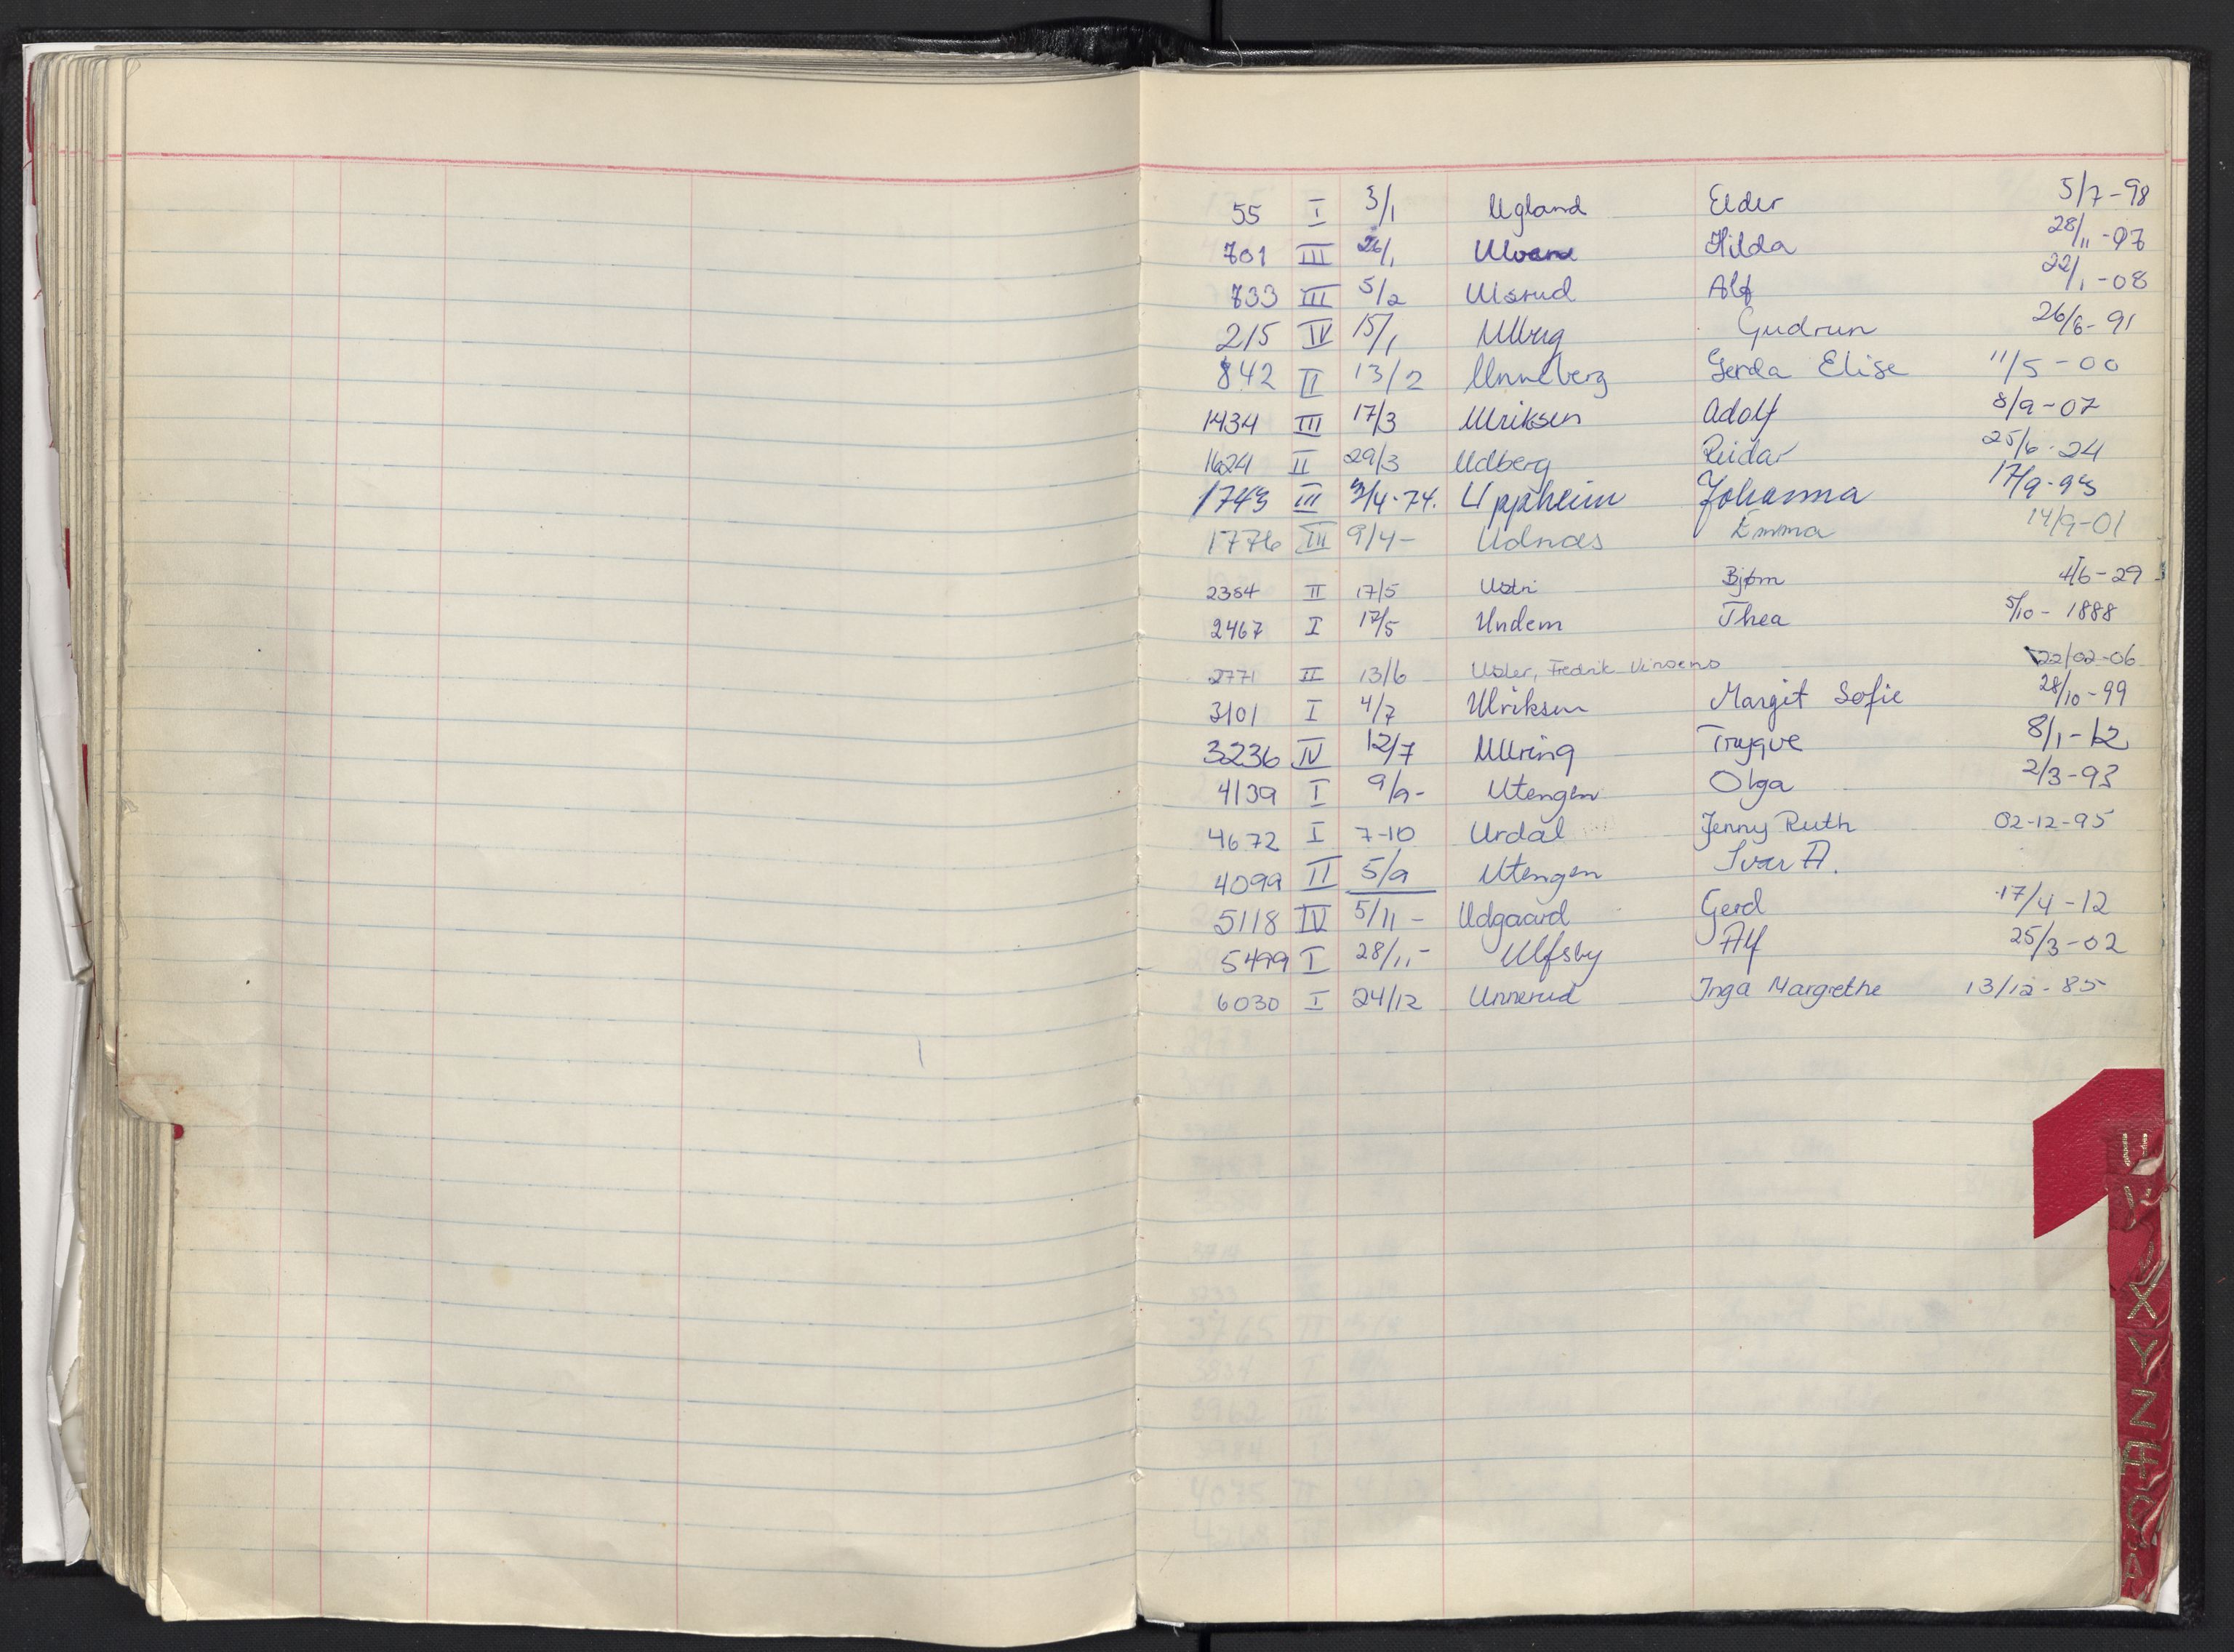 55 I 3/1 Ugland Elder 5/7-98
701 III 26/1 Ulvene Hilda 28/11-97
733 III 5/2 Ulsrud Alf 22/1-08
215 IV 15/1 Ullvig Gudrun 26/6-91
842 II 13/2 Unneberg Gerda Elise 11/5-00
1434 III 17/3 Ulriksen Adolf 8/9-07
1624 II 29/3 Udberg Reidar 25/6-24
1743 III 3/4-74. Uppheim Johanna 17/9-93
1776 III 9/4- Udnæs Emma 14/9-01
2384 II 17/5 Ustri Bjørn 4/6-29
2467 I 17/5 Undem Thea 5/10-1888
2771 II 13/6 Usler, Fredrik Vinsens 22/02-06
3101 I 4/7 Ulriksen Margit Sofie 28/10-99
3236 IV 12/7 Ullring Trygve 8/1-12
4139 I 9/9- Utengen Olga 2/3-93
4672 I 7-10 Urdal Jenny Ruth 02-12-95
4099 II 5/9 Utengen Ivar A.
5118 IV 5/11- Udgaard Gerd 17/4-12
5499 I 28/11- Ulfsby Alf 25/3-02
6030 I 24/12 Unnerud Inga Margrethe 13/12-85
U
V
X
Y
Z
Æ
Ø